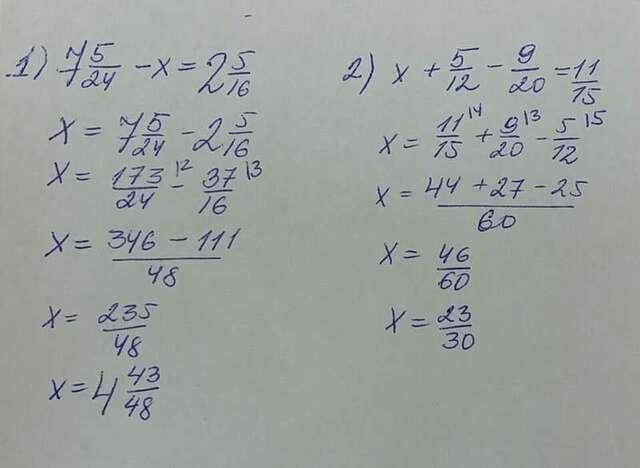 1) 7 5/24 - x = 2 5/16
x = 7 5/24 - 2 5/16
x = 173/24 \2 - 37/16 \3
x = 346 - 111/48
x = 235/48
x = 4 43/48
2) x + 5/12 - 9/20 = 11/15
x = 11/15 \4 + 9/20 \3 - 5/12 \5
x = 44 + 27 - 25/60
x = 46/60
x = 23/30